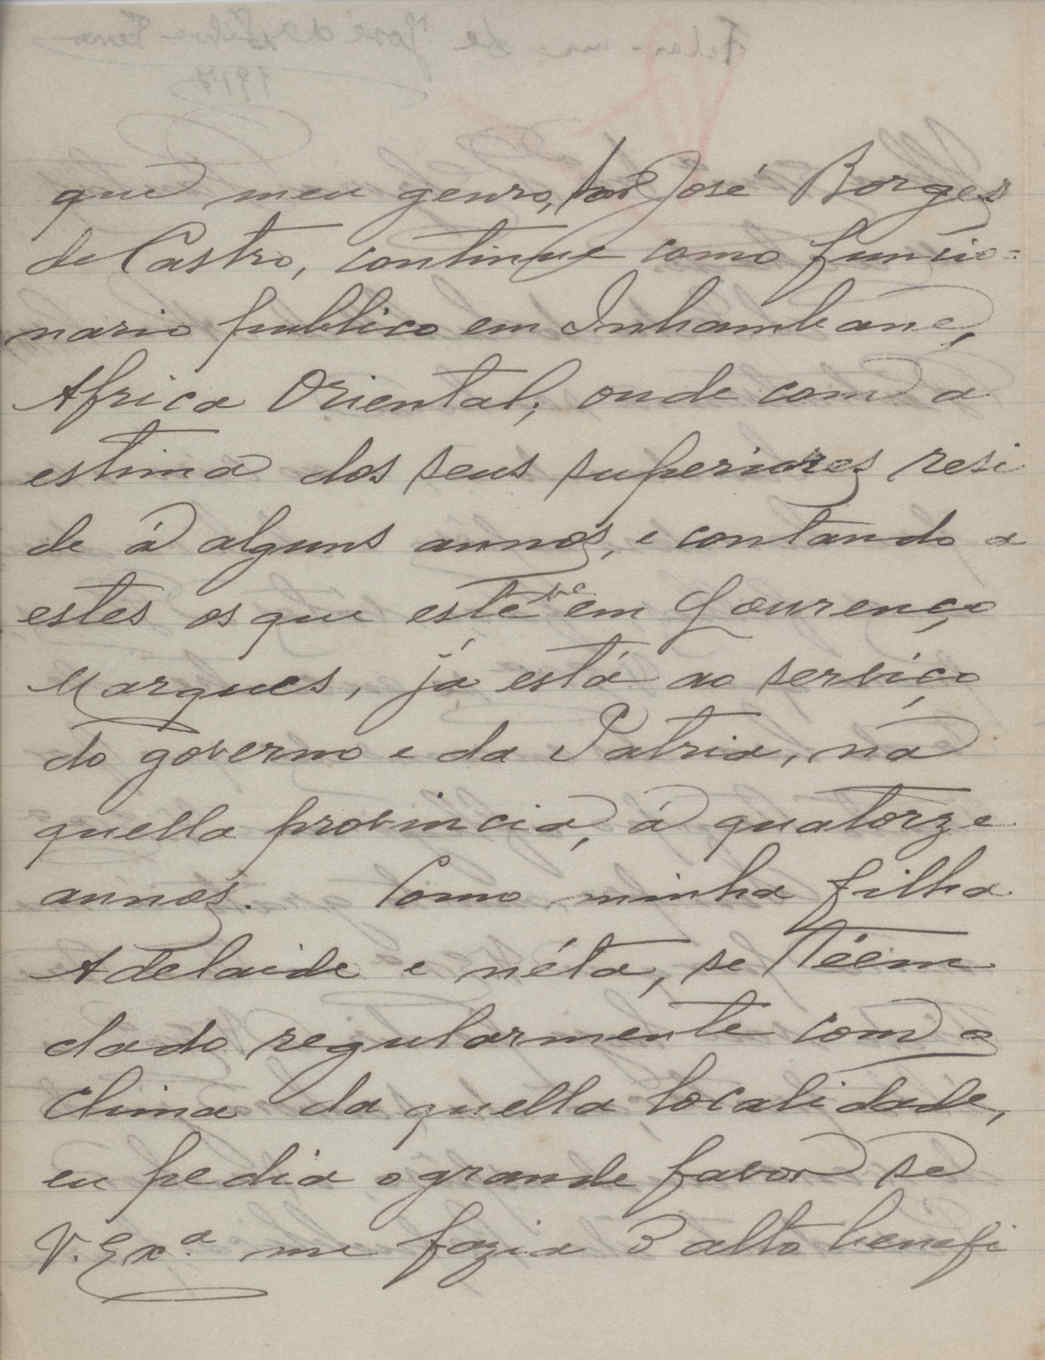 que meu genro, José Borges
de Castro, continue como funcio=
nario publico em Inhambane,
Africa Oriental, onde com a
estima dos seus superiores resi
de á alguns annos, e contando a
estes os que estève em Lourenço
Marques, já está ao serviço
do governo e da Patria, na
quella provincia, á quatorze
annos. Como minha filha
Adelaide e néta, se téem
dado regularmente com o
clima da quella localidade,
eu pedia o grande favor se
V. Exª. me fazia o alto benefi